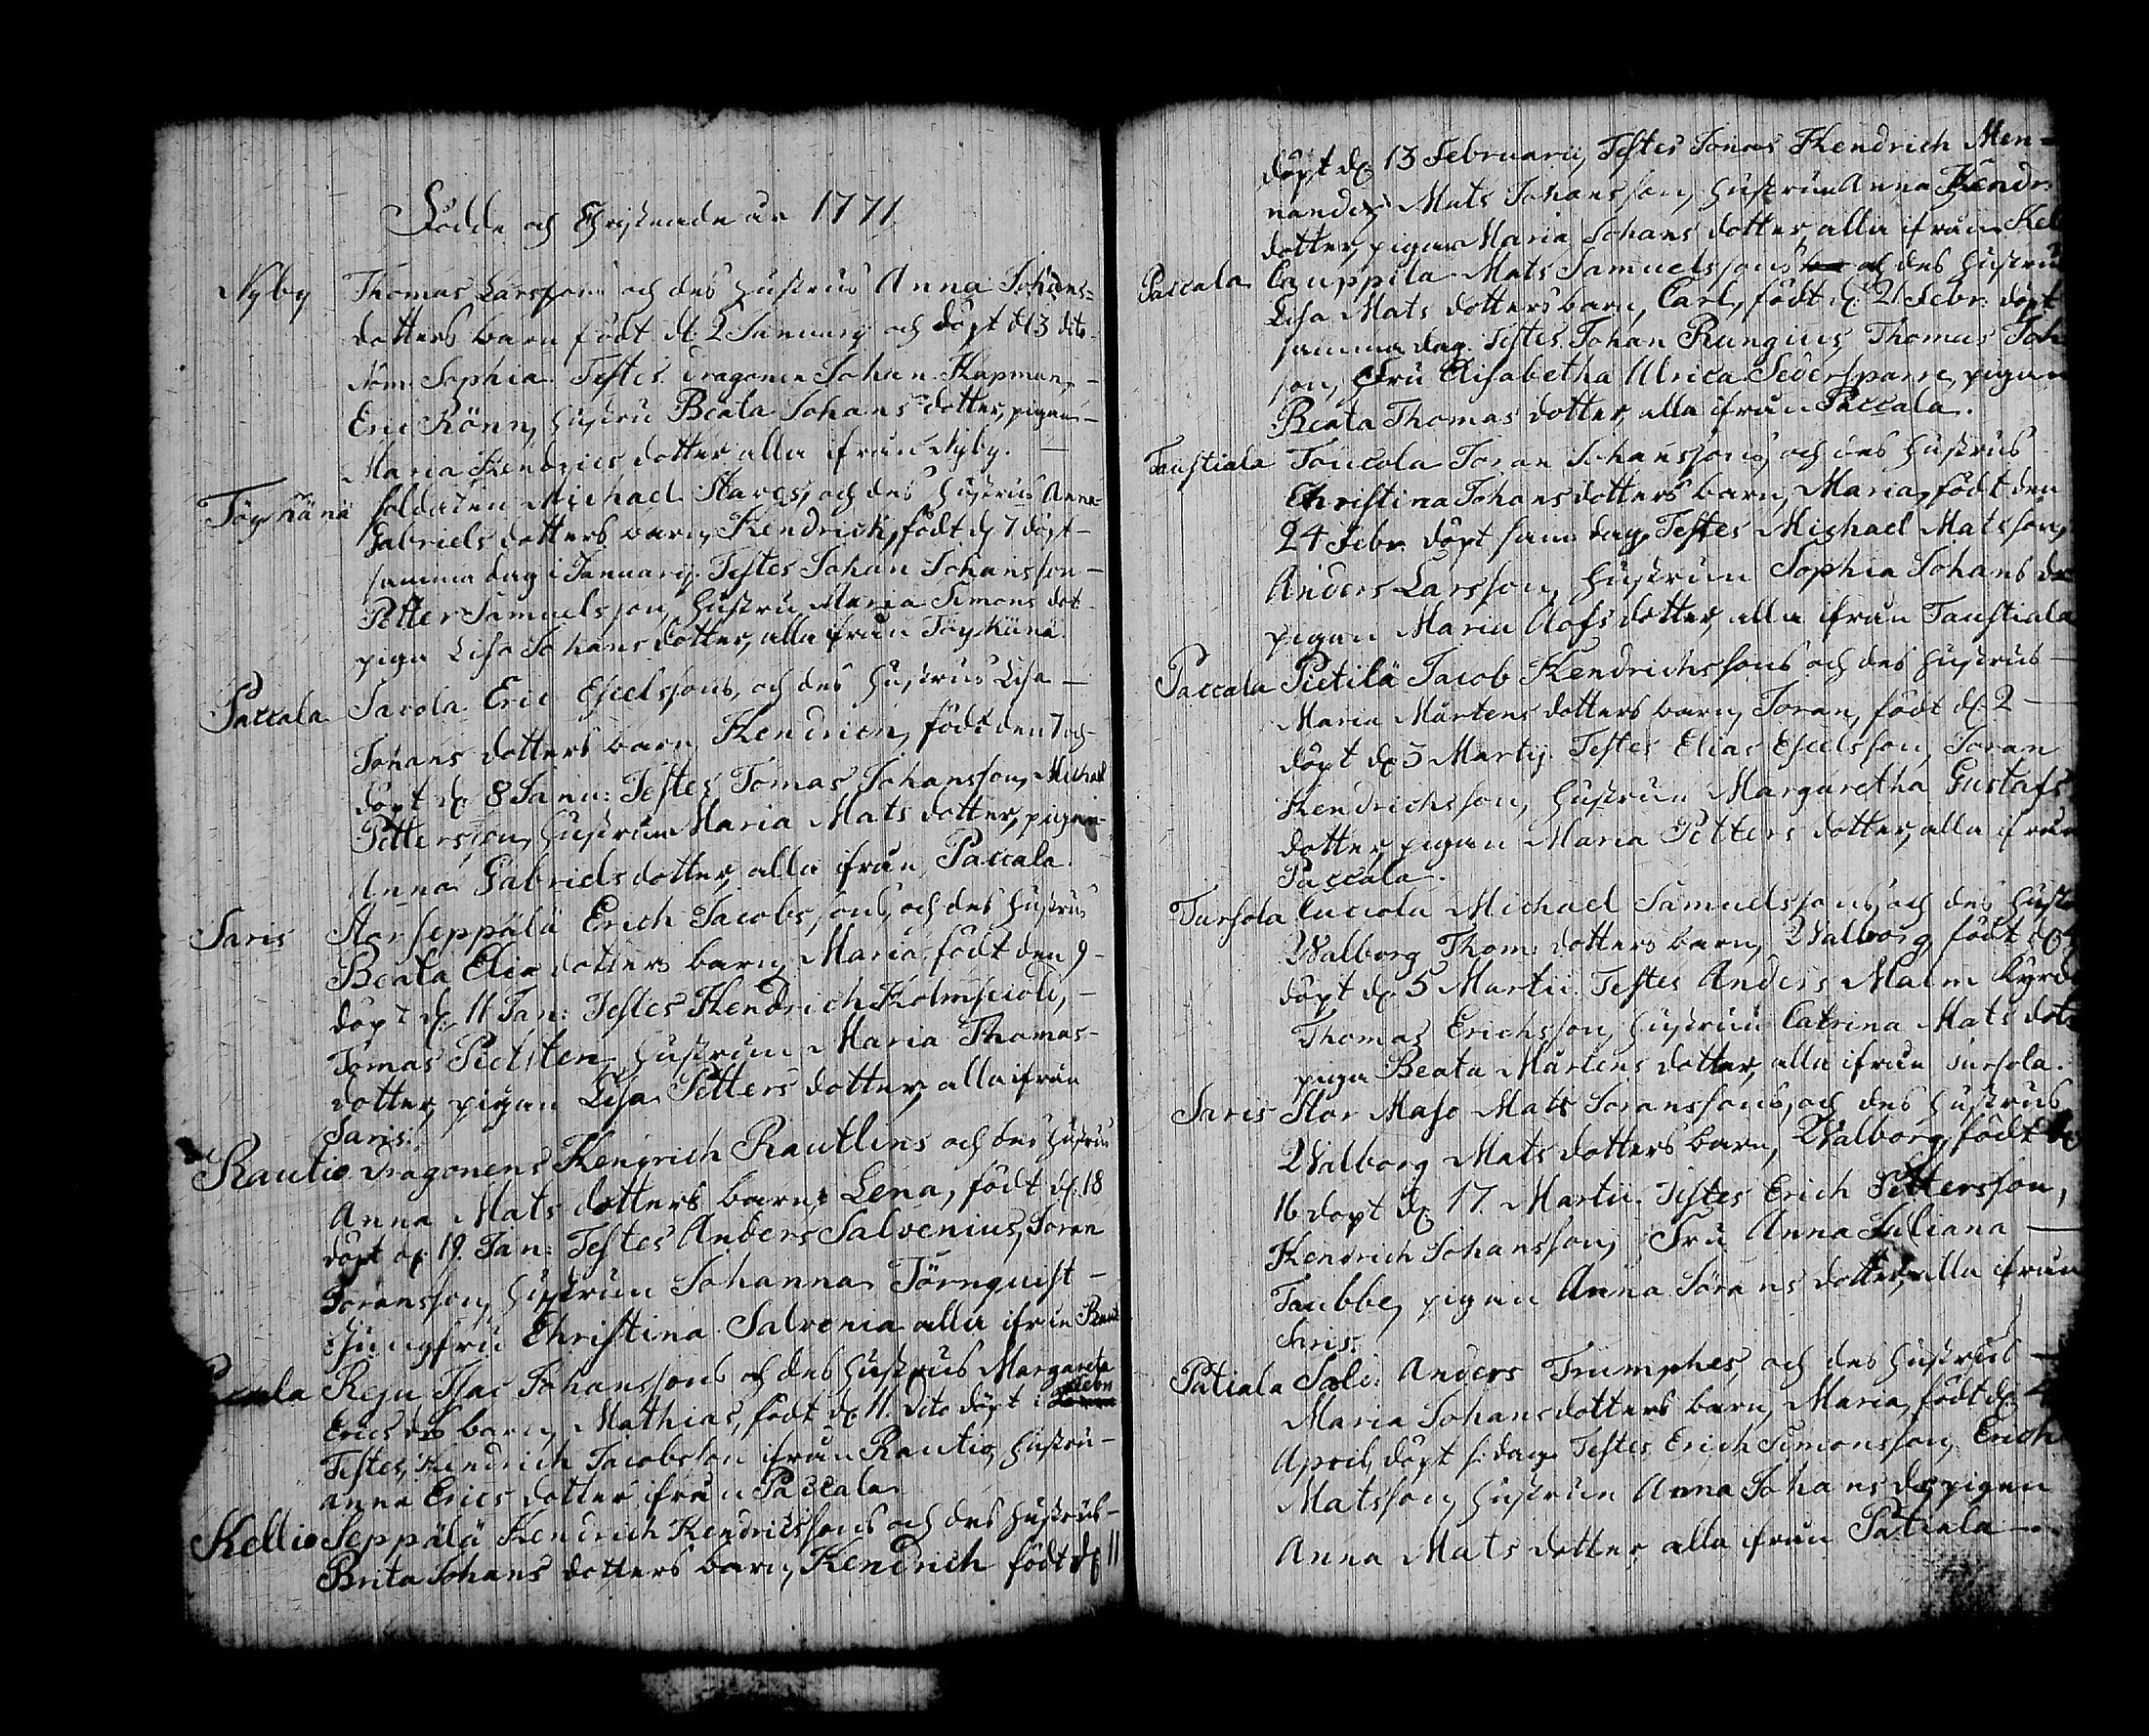 Födde och Christnade år 1771
Nyby Thomas Larssons och des hustrus Anna Johans=
dotters barn födt d. 2 Januarij och döpt d 3 dito
Nom: Sophia. Testes Dragonen Johan Kapman,
Eric Rönn, hustru Beata Johans dotter, pigan
Maria Hendrics dotter alla ifrån Nyby.
Töykänä Soldaten Michael Stares, och des hustrus Anna
Gabriels dotters barn, Hendrich, födt d 7 döpt
samma dag i Januarij. Testes Johan Johansson
Petter Samuelsson, hustru Maria Simons dot
piga Lisa Johans dotter, alla ifrån Töykänä.
Paccala Jacola Eric Eskelssons, och des hustrus Lisa
Johans dotters barn, Hendrich, födt den 7 och
döpt d. 8 Janu: Testes Tomas Johansson, Michael
Pettersson, hustrun Maria Mats dotter, pigan
Anna Gabriels dotter, alla ifrån Paccala.
Saris Storseppälä Erich Jacobssons och des hustrus
Beata Elia dotters barn, Maria, födt den 9
döpt d. 11 Jan: Testes Hendrich
Tomas hustrun Maria Thomas
dotter, pigan Lisa Petters dotter, alla ifrån
Saris.
Rautio Dragonens Hendrich Rautlins och des hustrus
Anna Mats dotters barn, Lena, födt d. 18
döpt d. 19. Jan: Testes Anders Salvenius, Joran
Joransson, hustrun Johanna Törnquist
Jungfru Christina Salvenia alla ifrån
Reju Isac Johanssons och des hustrus Margareta
Erics d:s barn, Mathias, födt d. 11. dito döpt i Febr
Testes, Hendrich Jacobsson ifrån Rautio, hustru
Anna Erics dotter ifrån Paccala.
Kellio Seppälä Hendrich Hendricssons och des hustrus
Brita Johans dotters barn, Hendrich födt d 11
döpt d. 13 Februarii, Testes Jonas Hendrich Men=
nander Mats Johansson, hustrun Anna Hendr:
dotter, pigan Maria Johans dotter alla ifrån Kel
Paccala Cauppila Mats Samuelssons och des hustru
Lisa Mats dotters barn, Carl, födt d. 21 Febr: döpt
samma dag. Testes Johan Rungius, Thomas Joh
son, Fru Elisabetha Ulrica Sedersparre, pigan
Beata Thomas dotter, alla ifrån Paccala.
Taustiala Touccola Joran Johanssons, och des hustrus
Christina Johans dotters barn, Maria, födt den
24 Febr. döpt sam: dag. Testes Michael Matsson,
Anders Larsson, hustrun Sophia Johans do
pigan Maria Olofs dotter, alla ifrån Taustiala
Paccala Pietilä Jacob Hendrichssons och des hustrus
Maria Mårtens dotters barn, Joran, födt d. 2
döpt d. 3 Martij. Testes Elias Eskelsson, Joran
Hendrichsson, hustrun Margaretha Gustafs
dotter, pigan Maria Petters dotter, alla ifrån
Paccala.
Tursola Cuccola Michael Samuelssons, och des hustru
Walborg Thom: dotters barn, Walborg, födt d.
döpt d. 5 Martii. Testes Anders Malm
Thomas Erichsson, hustrun Catrina Mats dot
piga Beata Mårtens dotter, alla ifrån Tursola.
Saris Stor Maso Mats Joranssons, och des hustrus
Walborg Mats dotters barn, Walborg, födt d.
16 döpt d. 17. Martii. Testes Erich Pettersson,
Hendrich Johansson, Fru Anna Juliana
Taubbe, pigan Anna Jörans dotter, alla ifrån
Saris.
Patiala Sold: Anders Triumphes, och des hustrus
Maria Johans dotters barn, Maria, födt d.
April, döpt s: dag. Testes Erich Simonsson, Erich
Matsson, hustrun Anna Johans d. pigan
Anna Mats dotter alla ifrån Patiala.